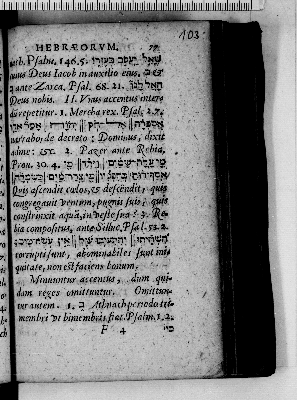 HEBRÆORVM.
103
nah. Psalm. 146.5. שֶׁאֵל יַעֲקֹב בְּעֶזְרוֹ
cuius Deus Iacob in auxilio eius.
ante Zarca, Psal. 68. 21. הָאֵל לָנוּ
Deus nobis. II. Vnus accentus inter-
dū repetitur. 1. Mercha rex. Psal. 2. 7.
אֲסַפְּרָה אֶל חֹק יְהוָה אָמַר אֵלַי
narrabo de decreto: Dominus, dixit
ad me: 2. Pazer ante Rebia,
Prou. 30. 4. מִי עָלָה שָׁמַיִם
Quis ascendit cœlos, & descēdit, quis
congregauit ventum, pugnis suis, quis
constrinxit aquā, in veste sua? 3. Re-
bia compositus, ante Silluc, Psal. 53. 2.
הִשְׁחִיתוּ וְהִתְעִיבוּ עָוֶל אֵין עֹשֵׂה טוֹב
corrupti sunt, abominabiles sunt ini-
quitate, non est faciens bonum.
Minuontur accentus, dum qui-
dam reges omittuntur. Omittun-
tur autem. 1. Athnach periodo tri-
membri vt bimembris fiat. Psalm. 1. 2.
F 4